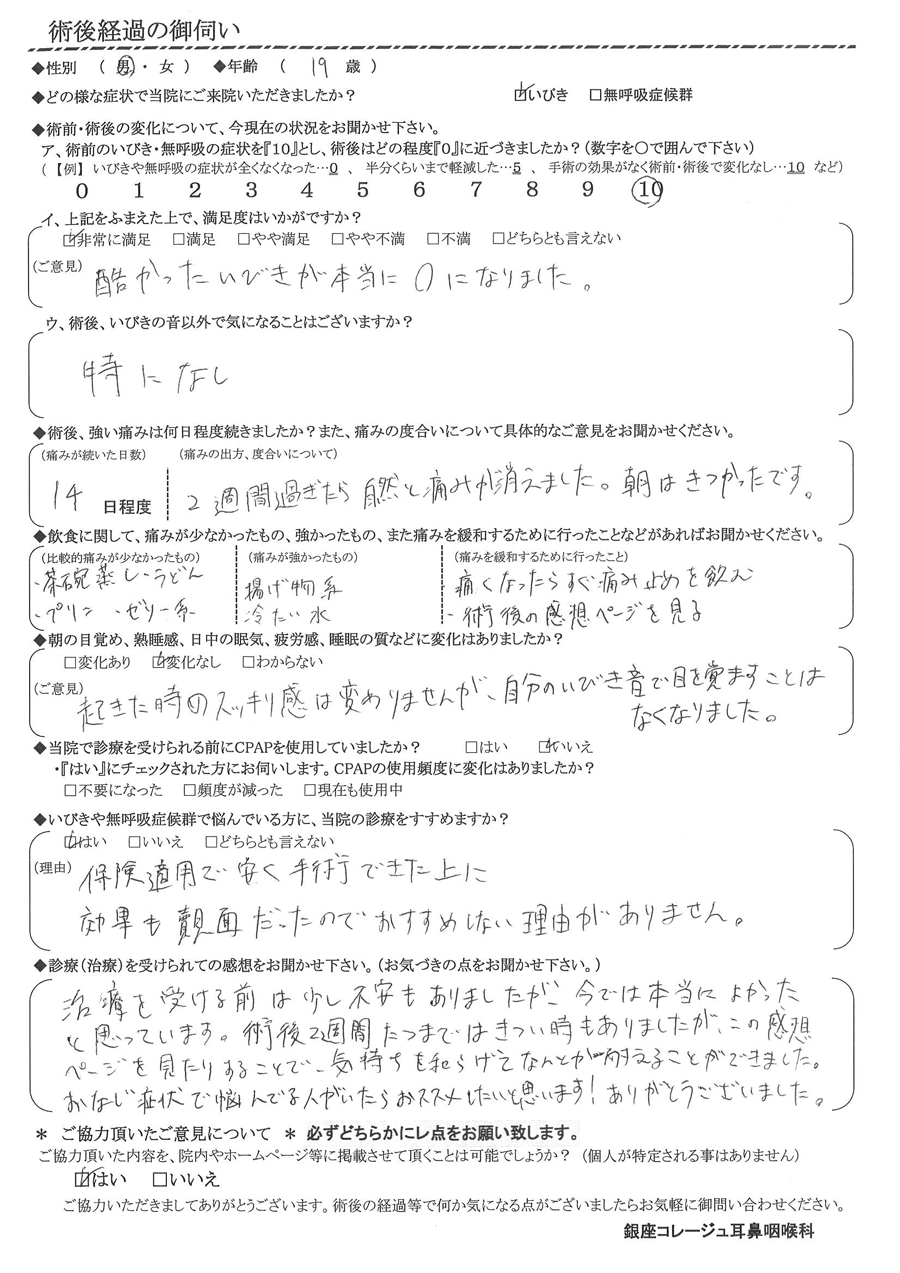 術後経過の御伺い
◆性別 ( 男 ・ 女 ) ◆年齢 ( 19 歳 )
◆どの様な症状で当院にご来院いただきましたか? ☑いびき □無呼吸症候群
◆術前・術後の変化について、今現在の状況をお聞かせ下さい。
ア、術前のいびき・無呼吸の症状を『10』とし、術後はどの程度『0』に近づきましたか?(数字を○で囲んで下さい)
(【例】 いびきや無呼吸の症状が全くなくなった…0 、 半分くらいまで軽減した…5 、 手術の効果がなく術前・術後で変化なし…10 など)
0 1 2 3 4 5 6 7 8 9 10
イ、上記をふまえた上で、満足度はいかがですか?
☑非常に満足 □満足 □やや満足 □やや不満 □不満 □どちらとも言えない
(ご意見) 酷かったいびきが本当に0になりました。
ウ、術後、いびきの音以外で気になることはございますか?
特になし
◆術後、強い痛みは何日程度続きましたか?また、痛みの度合いについて具体的なご意見をお聞かせください。
(痛みが続いた日数) (痛みの出方、度合いについて)
14 日程度 2週間過ぎたら自然と痛みが消えました。朝はきつかったです。
◆飲食に関して、痛みが少なかったもの、強かったもの、また痛みを緩和するために行ったことなどがあればお聞かせください。
(比較的痛みが少なかったもの) (痛みが強かったもの) (痛みを緩和するために行ったこと)
・茶碗蒸し・うどん 揚げ物系 痛くなったらすぐ痛み止めを飲む
・プリン ・ゼリー系 冷たい水 ・術後の感想ページを見る
◆朝の目覚め、熟睡感、日中の眠気、疲労感、睡眠の質などに変化はありましたか?
□変化あり ☑変化なし □わからない
(ご意見) 起きた時のスッキリ感は変わりませんが、自分のいびき音で目を覚ますことは
なくなりました。
◆当院で診療を受けられる前にCPAPを使用していましたか? □はい ☑いいえ
・『はい』にチェックされた方にお伺いします。CPAPの使用頻度に変化はありましたか?
□不要になった □頻度が減った □現在も使用中
◆いびきや無呼吸症候群で悩んでいる方に、当院の診療をすすめますか?
☑はい □いいえ □どちらとも言えない
(理由) 保険適用で安く手術できた上に
効果も覿面だったのでおすすめしない理由がありません。
◆診療(治療)を受けられての感想をお聞かせ下さい。(お気づきの点をお聞かせ下さい。)
治療を受ける前は少し不安もありましたが、今では本当によかった
と思っています。術後2週間たつまではきつい時もありましたが、この感想
ページを見たりすることで、気持ちを和らげてなんとか耐えることができました。
おなじ症状で悩んでる人がいたらおススメしたいと思います!ありがとうございました。
＊ ご協力頂いたご意見について ＊ 必ずどちらかにレ点をお願い致します。
ご協力頂いた内容を、院内やホームページ等に掲載させて頂くことは可能でしょうか? (個人が特定される事はありません)
☑はい □いいえ
ご協力いただきましてありがとうございます。術後の経過等で何か気になる点がございましたらお気軽に御問い合わせください。
銀座コレージュ耳鼻咽喉科